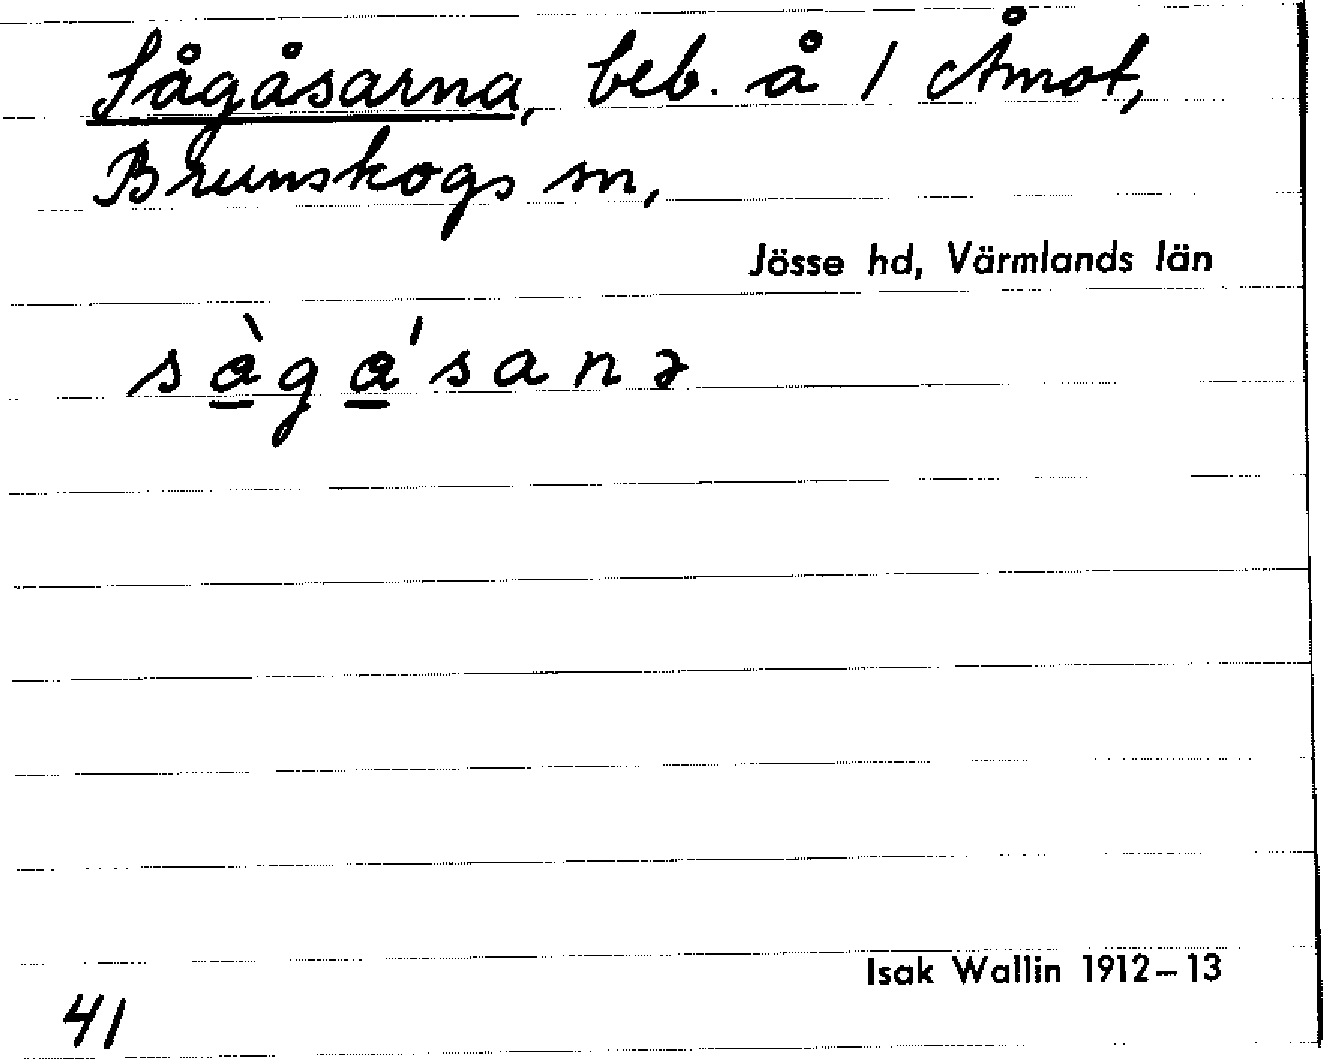 Sågåsarna, beb. å 1 Åmot,
Brunskogs sn,
Jösse hd, Värmlands län
sà̲ga̲'sanə
Isak Wallin 1912–13
41